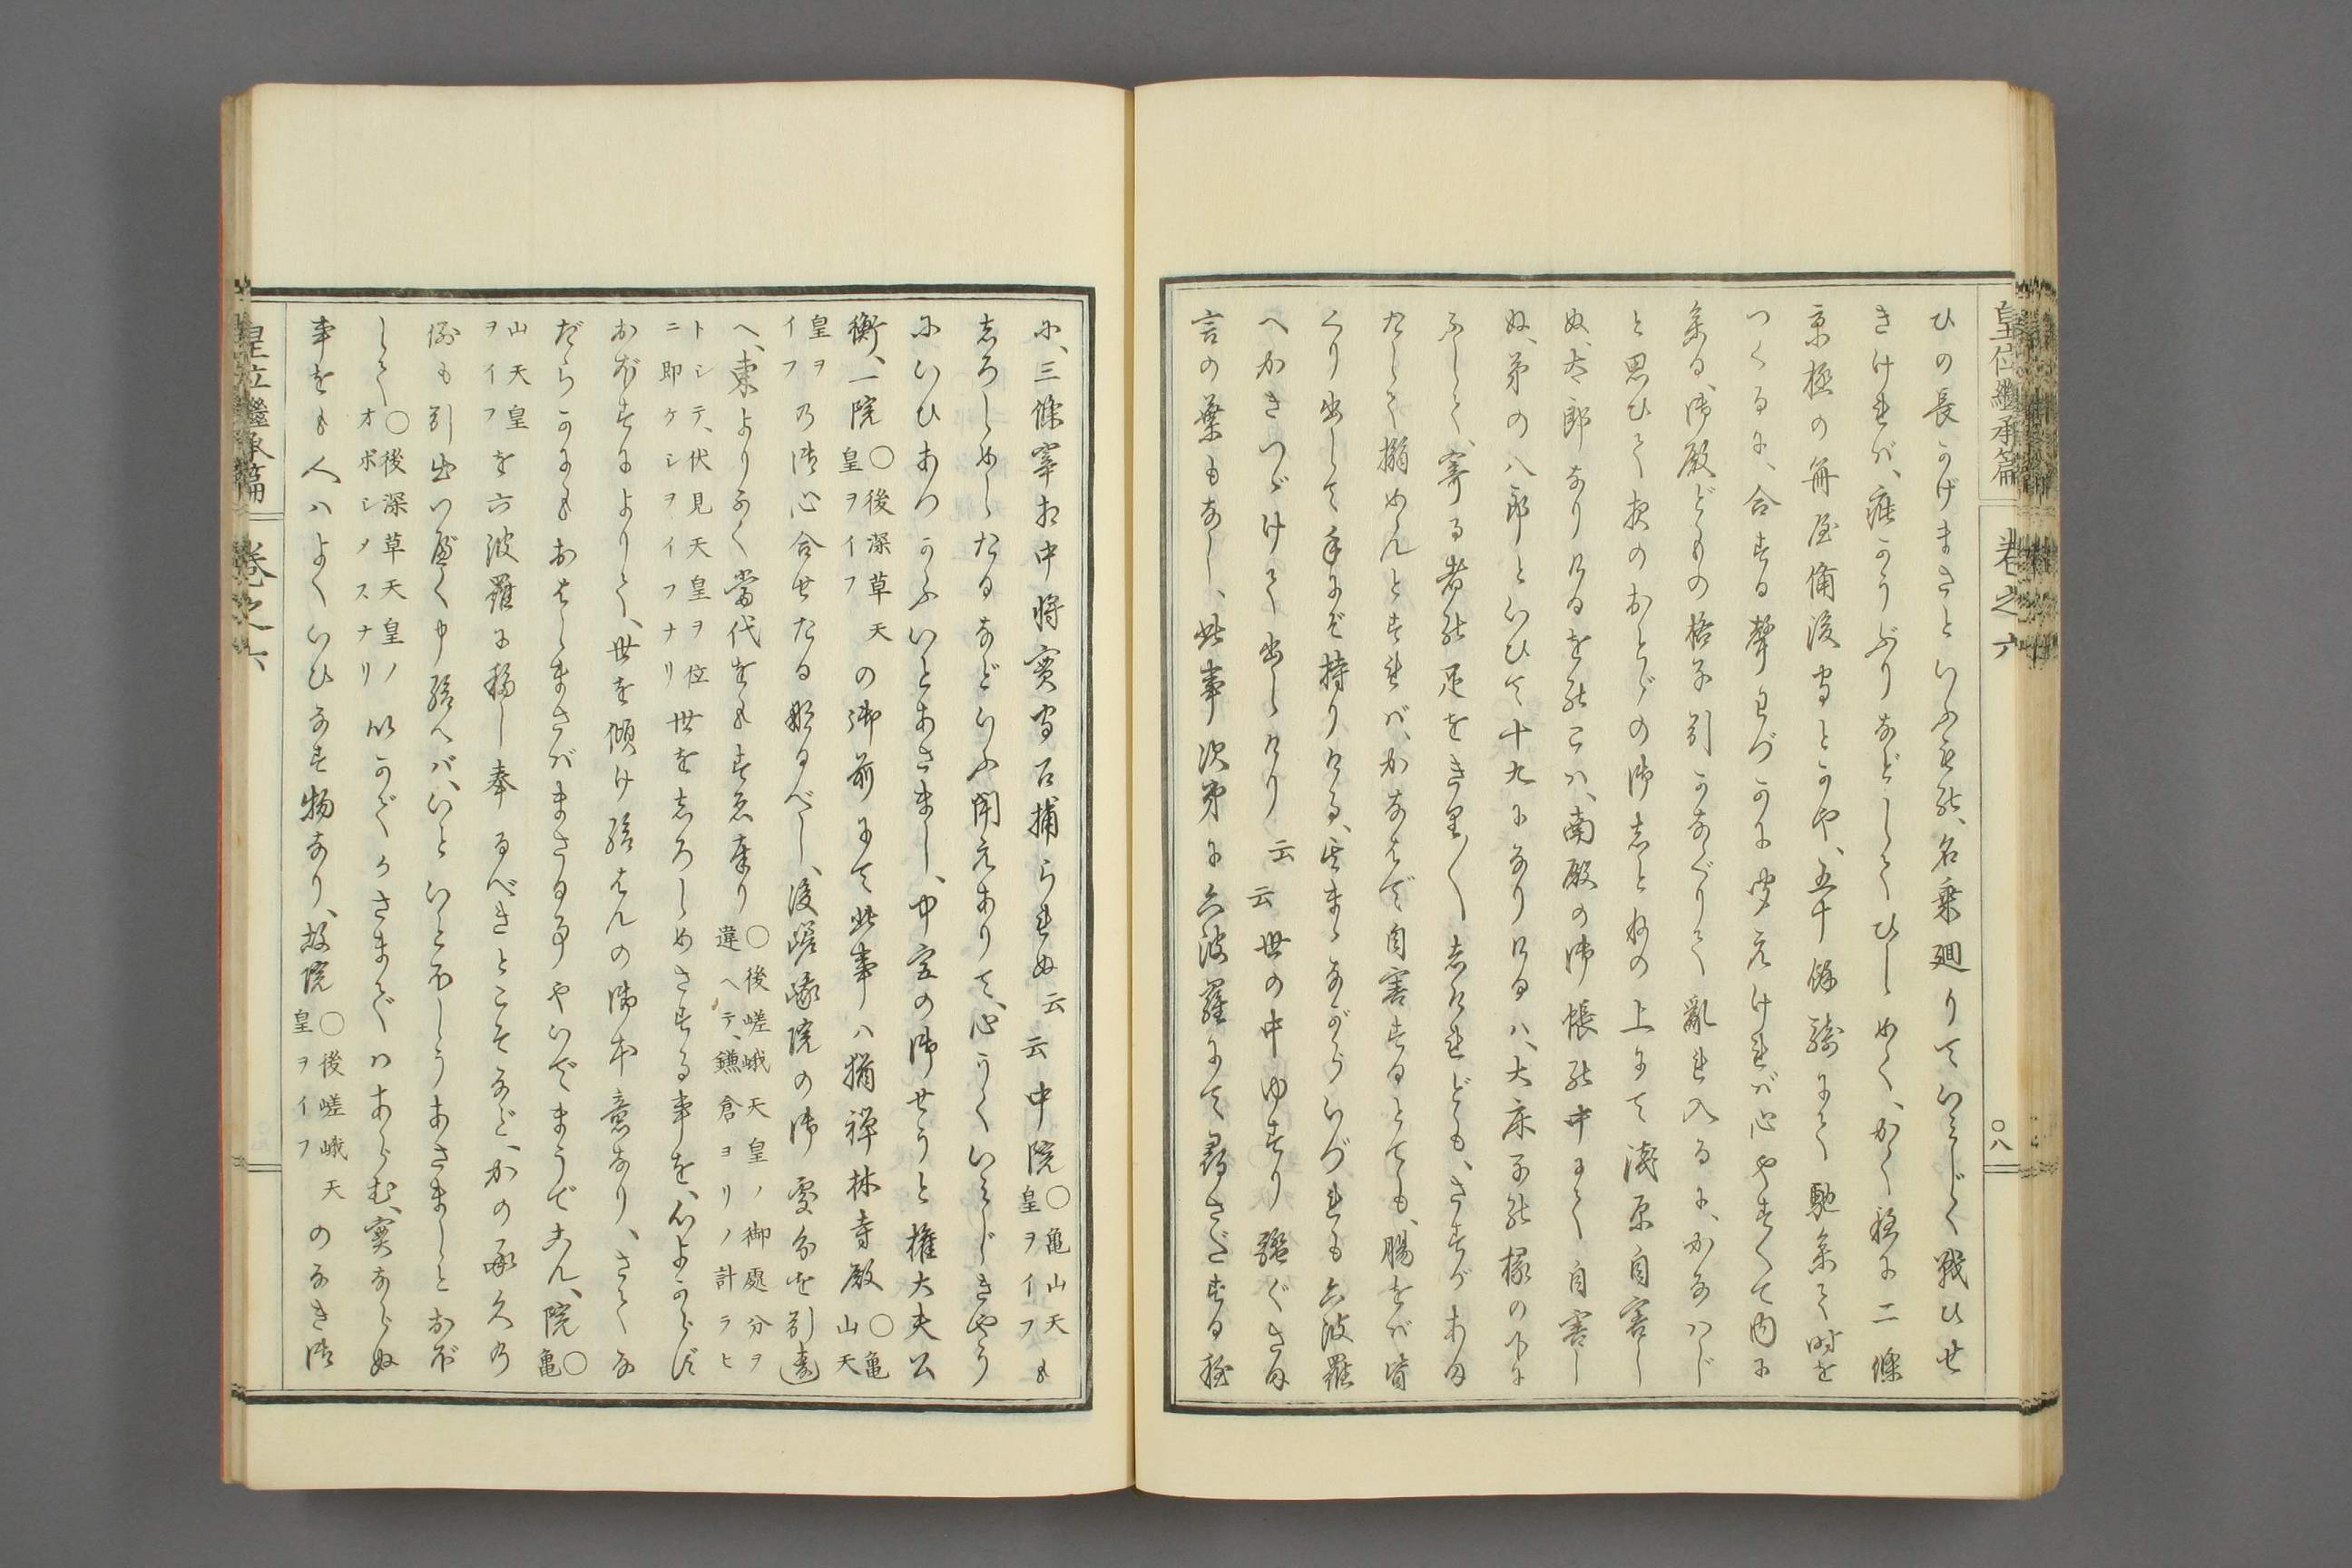 皇位繼承篇 卷之六 ○八
ひの長かげまさといふもの、名乗廻りていみじく戰ひせ
きければ、疵かうぶりなどしてひしめく、かく程に二條
京極の篝屋備後守とかや、五十餘騎にて馳参て時を
つくるに、合する聲わづかに聞えければ心やすくて内に
参る、御殿どもの格子引かなぐりて亂れ入るに、かなハじ
と思ひて夜のおとゞの御志とねの上にて淺原自害し
ぬ、太郎なりけるをのこハ、南殿の御帳の中にて自害し
ぬ、弟の八郎といひて十九になりけるハ、大床子の椽の下に
ふして、寄る者の足をきり〳〵志けれども、さすがあま
たして搦めんとすれば、かなはで自害するとても、膓をば皆
くり出して手にぞ持りける、其まゝながらいづれも六波羅
へかきつゞけて出しけり云云世の中ゆすり騒ぐさま
言の葉もなし、此事次第に六波羅にて尋さたする程
に、三條宰相中将實守召捕られぬ云云中院○亀山天皇ヲイフも
志ろしめしたるなどいふ聞えありて、心うくいみじきやう
にいひあつかふいとあさまし、中宮の御せうと權大夫公
衡、一院○後深草天皇ヲイフの御前にて此事ハ猶禅林寺殿○亀山天
皇ヲイフの御心合せたる成るべし、後嵯峨院の御處分を引違
へ、東よりかく當代をもすゑ奉り○後嵯峨天皇ノ御處分ヲ違ヘテ、鎌倉ヨリノ計ラヒ
トシテ、伏見天皇ヲ位ニ即ケシヲイフナリ世を志ろしめさする事を、心よからず
おぼすによりて、世を傾け給はんの御本意なり、さてな
だらかにもおはしまさばまさる事やいでまうでこん、院○亀
山天皇ヲイフを六波羅に移し奉るべきとこそなど、かの承久の
例も引出つべく申給へバ、いといとをしうあさましとおぼ
して○後深草天皇ノオボシメスナリいかでかさまでハあらむ、實ならぬ
事をも人ハよくいひなす物なり、故院○後嵯峨天皇ヲイフのなき御
皇位繼承篇 卷之六